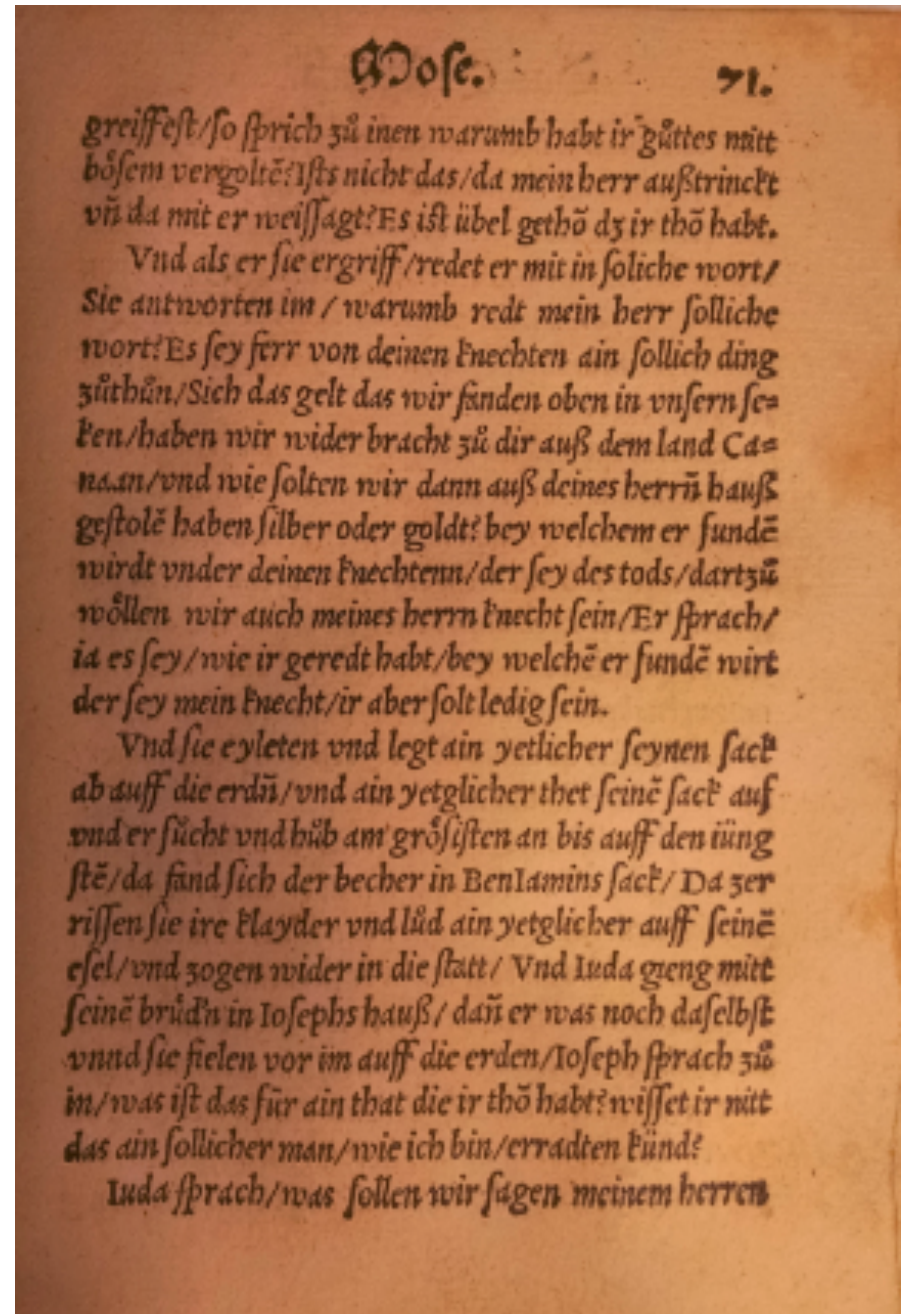 Mose. 71.
greiffest/so sprich zů inen warumb habt ir gůttes mitt
bösem vergoltẽ?Ists nicht das/da mein herr außtrinckt
vñ da mit er weissagt?Es ist übel gethõ dz ir thõ habt.
Vnd als er sie ergriff/redet er mit in soliche wort/
Sie antworten im / warumb redt mein herr solliche
wort?Es sey ferr von deinen knechten ain sollich ding
zůthůn/Sich das gelt das wir fanden oben in vnsern se=
ken/haben wir wider bracht zů dir auß dem land Ca=
naan/vnd wie solten wir dann auß deines herrñ hauß
gestolẽ haben silber oder goldt? bey welchem er fundẽ
wirdt vnder deinen knechtenn/der sey des tods/dartzů
wöllen wir auch meines herrn knecht sein/Er sprach/
ia es sey/wie ir geredt habt/bey welchẽ er fundẽ wirt
der sey mein knecht/ir aber solt ledig sein.
Vnd sie eyleten vnd legt ain yetlicher seynen sack
ab auff die erdñ/vnd ain yetglicher thet seinẽ sack auf
vnd er sůcht vnd hůb am grösisten an bis auff den iüng
stẽ/da fand sich der becher in BenIamins sack/ Da zer
rissen sie ire klayder vnd lůd ain yetglicher auff seinẽ
esel/vnd zogen wider in die statt/ Vnd Iuda gieng mitt
seinẽ brůd'n in Iosephs hauß/ dañ er was noch daselbst
vnnd sie fielen vor im auff die erden/Ioseph sprach zů
in/was ist das für ain that die ir thõ habt?wisset ir nitt
das ain sollicher man/wie ich bin/erradten künd?
Iuda sprach/was sollen wir sagen meinem herren